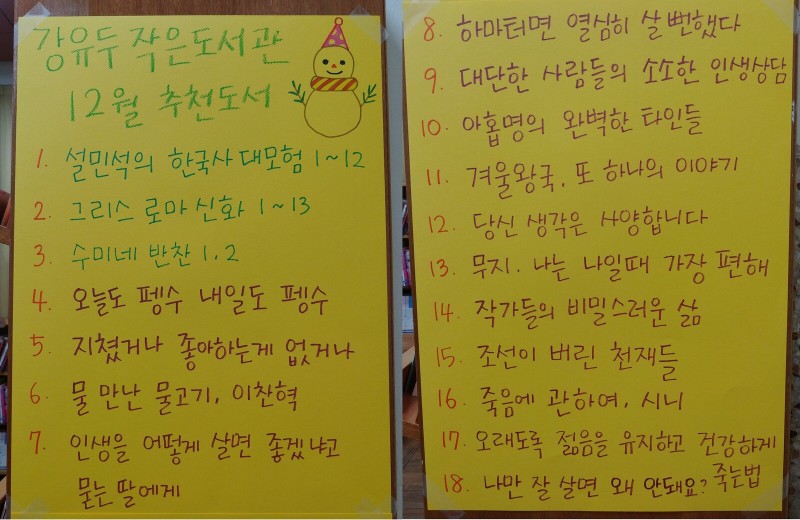 강유두 작은도서관
12월 추천도서
1. 설민석의 한국사대모험 1~12
2. 그리스 로마 신화 1~13
3. 수미네 반찬 1.2
4. 오늘도 펭수 내일도 펭수
5. 지쳤거나 좋아하는게 없거나
6. 물 만난 물고기, 이찬혁
7. 인생을 어떻게 살면 좋겠냐고
묻는 딸에게
8. 하마터면 열심히 살 뻔했다
9. 대단한 사람들의 소소한 인생상담
10. 아홉명의 완벽한 타인들
11. 겨울왕국, 또 하나의 이야기
12. 당신 생각은 사양합니다
13. 무지. 나는 나일때 가장 편해
14. 작가들의 비밀스러운 삶
15. 조선이 버린 천재들
16. 죽음에 관하여, 시니
17. 오래도록 젊음을 유지하고 건강하게
죽는법
18. 나만 잘 살면 왜 안돼요?